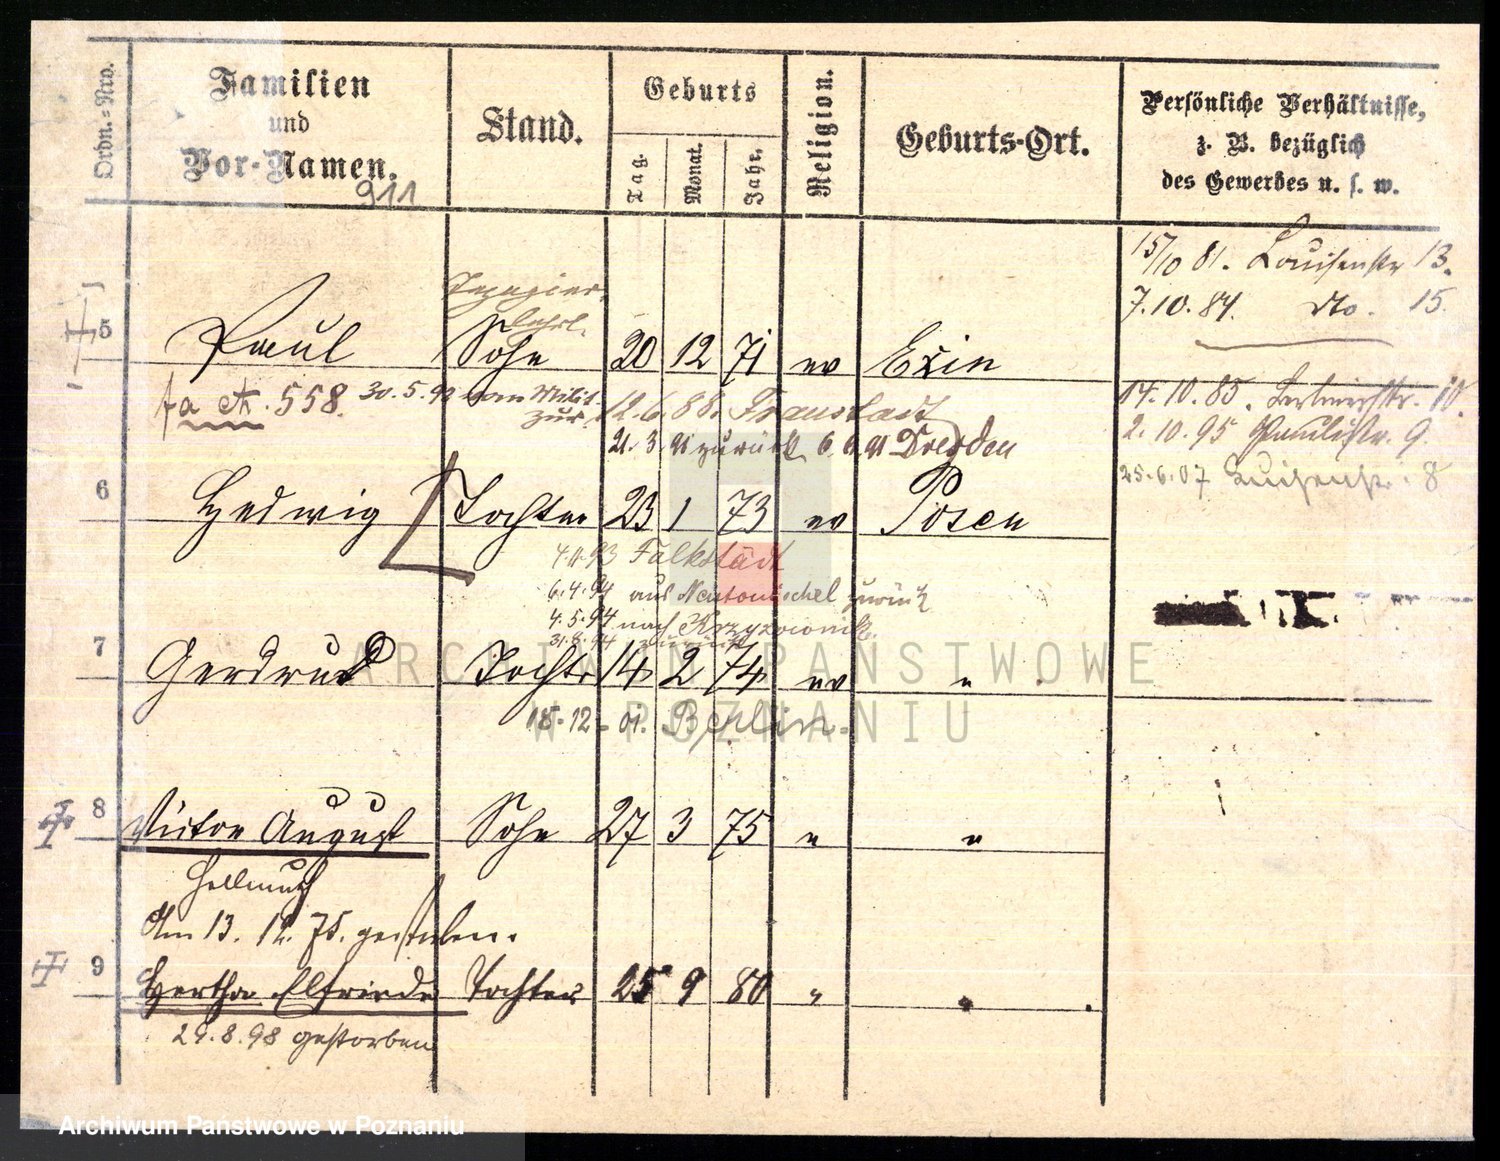 Ordn.=Nro.
Familien
und
Vor-Namen.
911
Stand.
Geburts
Tag.
Monat.
Jahr.
Religion.
Geburts-Ort.
Persönliche Verhältnisse,
z. B. bezüglich
des Gewerbes u. s. w.
15/10 81. Louisenstr 13.
7.10.84. do. 15.
5 Paul Sohn 20 12 71 ev Exin
14.10.85. Berlinerstr. 10.
558. 30.5.92 vom Milit. zur. 12.6.88. Fraustadt
2.10.95 Paulistr. 9.
21.3.91 zurück 6.6.91 Dresden
25.6.07 Luisenstr. 8
6 Hedwig Tochter 23 1 73 ev Posen
4.11.93 Falkstädt
6.4.94 aus Neutomischel zurück
4.5.94 nach
31.8.94 zurück
7 Gerdrud Tochter 14 2 74 ev "
ARCHIWUM PAŃSTWOWE
W POZNANIU
18.12.01. Berlin.
8 Victor August Sohn 27 3 75 " "
Hellmuth
Am 13. 12. 75. gestorben.
9 Hertha Elfriede Tochter 25 9 80 " "
29.8.98 gestorben
Archiwum Państwowe w Poznaniu